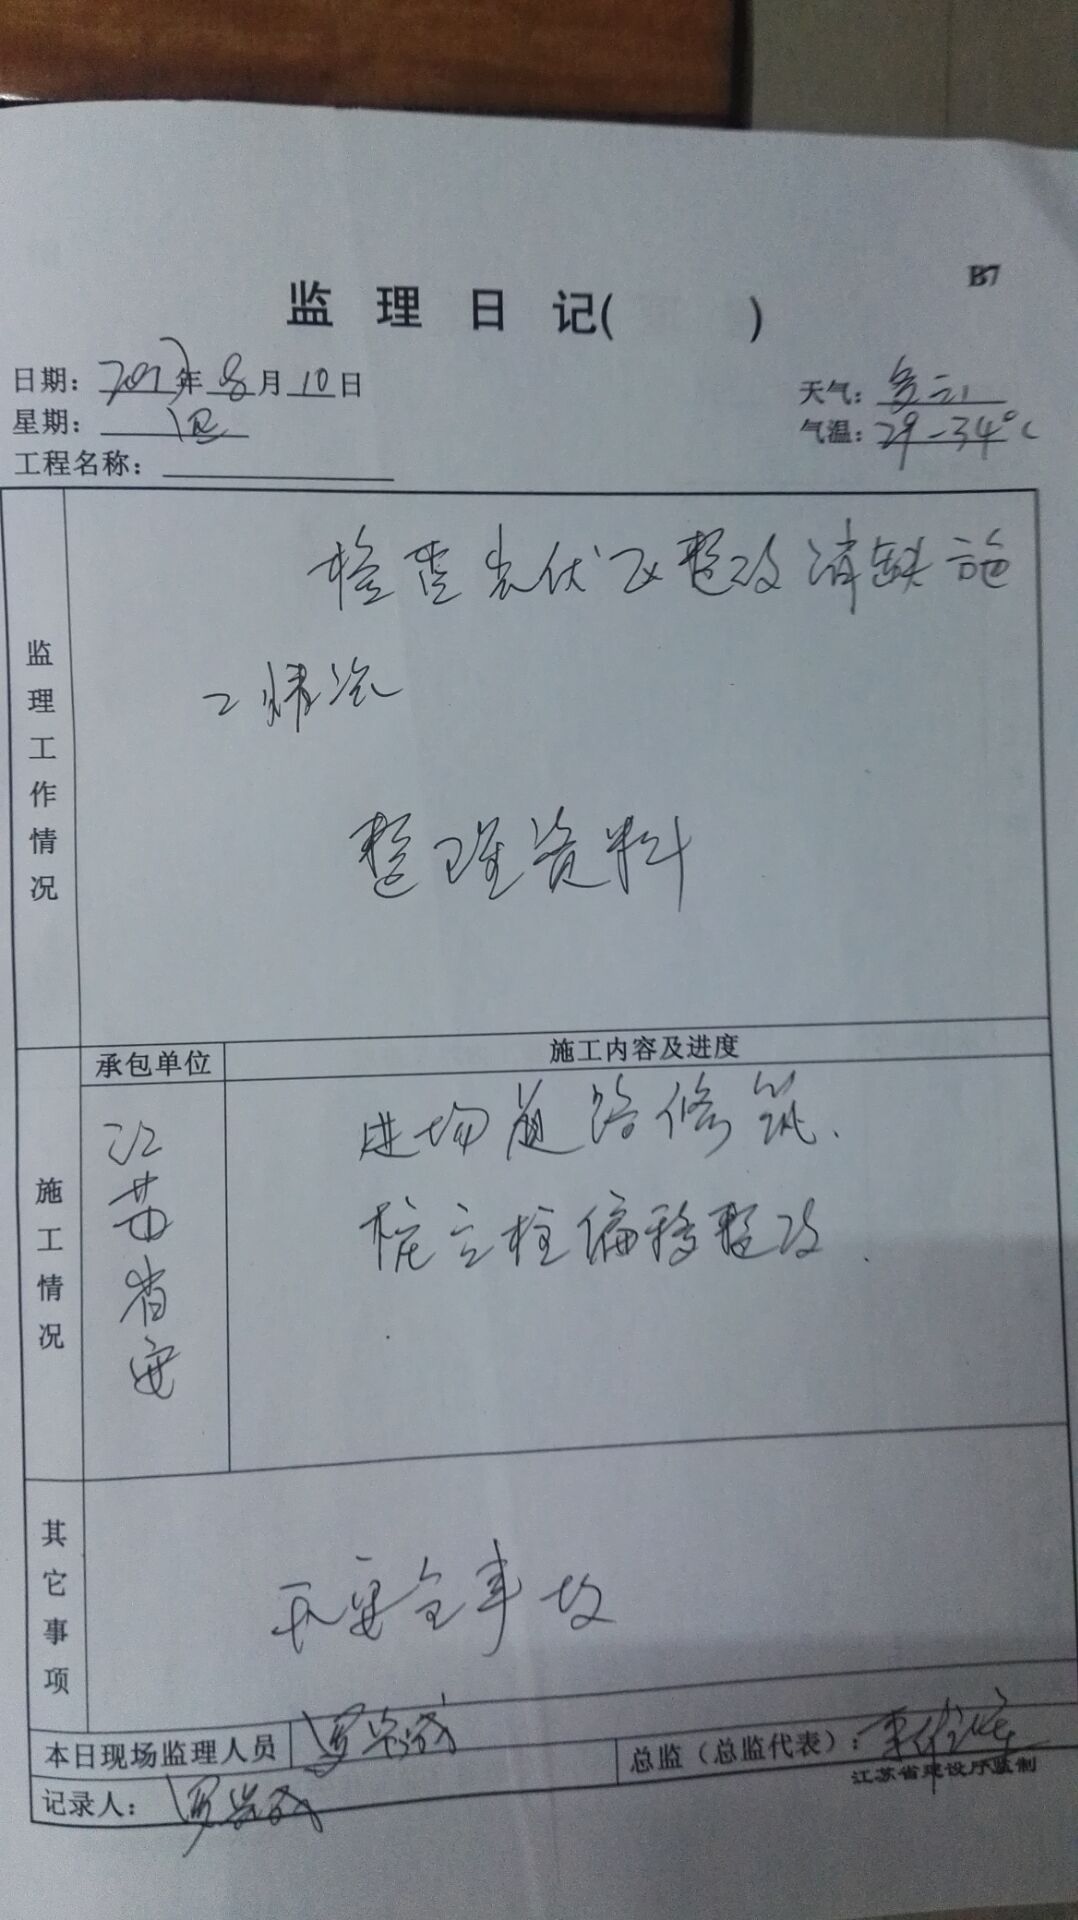 B7
监理日记( )
日期：2017年8月10日
天气：多云
星期：四
气温：29-34℃
工程名称：
监理工作情况
检查光伏区整改消缺施
工情况
整理资料
施工情况
承包单位
施工内容及进度
江苏省安
进场道路修筑.
桩立柱偏移整改.
其它事项
无安全事故
本日现场监理人员
总监（总监代表）：
江苏省建设厅监制
记录人：